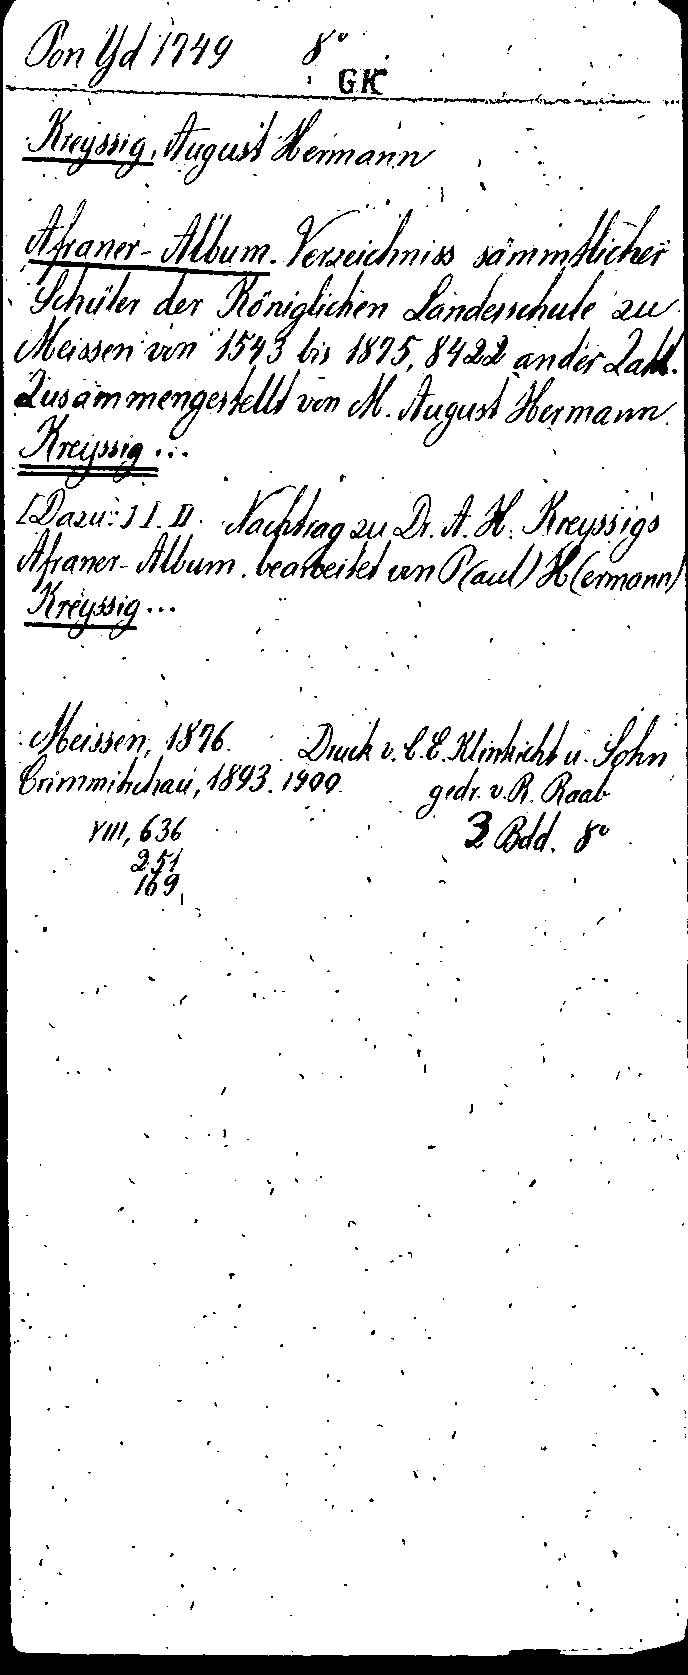 Pon Yd 1749 8°
GK
Kreyssig, August Hermann
Afraner-Album. Verzeichniss sämmtlicher
Schüler der Königlichen Landesschule zu
Meissen von 1543 bis 1875, 8422 an der Zahl.
Zusammengestellt von M. August Hermann
Kreyssig...
[Dazu:] I. II. Nachtrag zu Dr. A. H. Kreyssig's
Afraner-Album. bearbeitet von P(aul) H(ermann)
Kreyssig...
Meissen, 1876. Druck v. C. E. Klinkicht u. Sohn
Crimmitschau, 1893. 1900. gedr. v. R. Raab
VIII, 636 3 Bdd. 8°
251
169